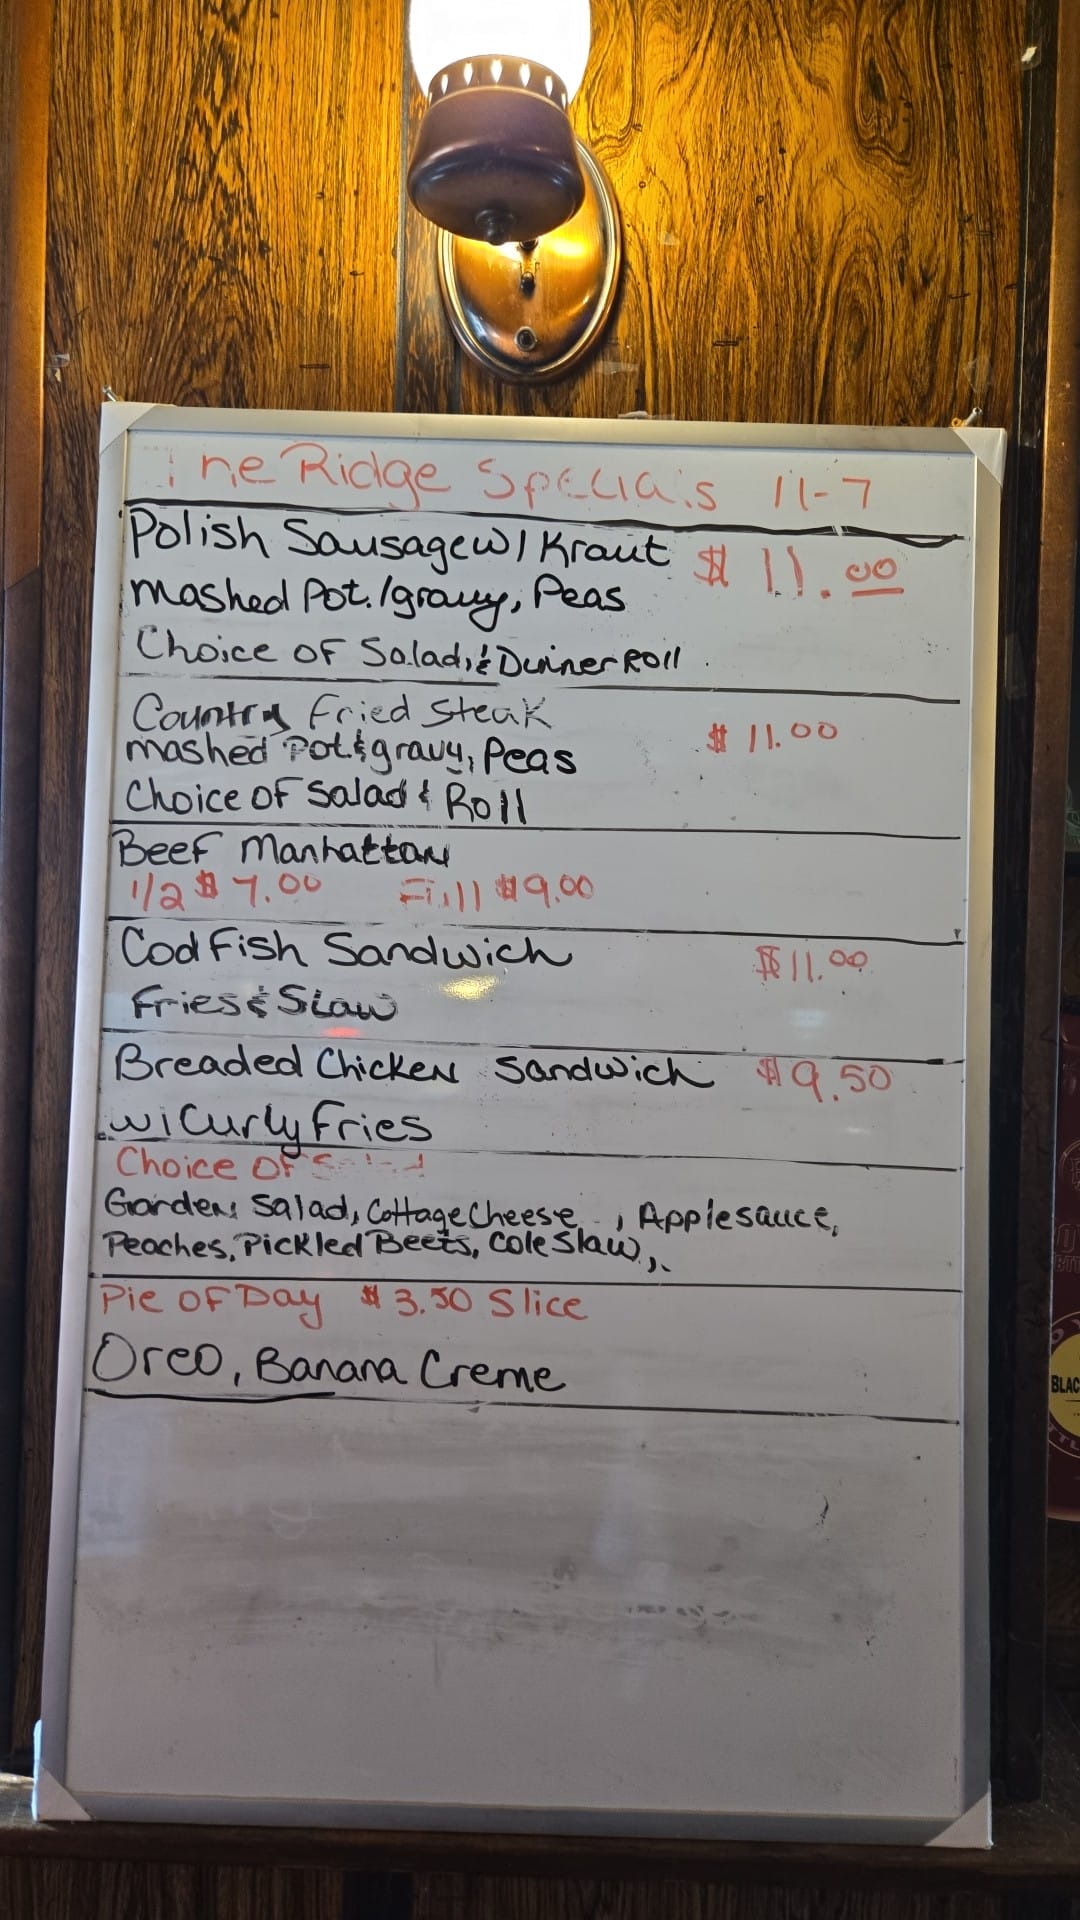 The Ridge Specials 11-7
Polish Sausage w/ Kraut $11.00
mashed Pot./gravy, Peas
Choice of Salad, & Dinner Roll
Country Fried Steak
mashed Pot & gravy, Peas $11.00
Choice of Salad & Roll
Beef Manhattan
1/2 $7.00 Full $9.00
Cod Fish Sandwich $11.00
Fries & Slaw
Breaded Chicken Sandwich $9.50
w/ Curly Fries
Choice of Salad
Garden Salad, Cottage Cheese , Applesauce,
Peaches, Pickled Beets, Cole Slaw,
Pie of Day $3.50 Slice
Oreo, Banana Creme
BLAC